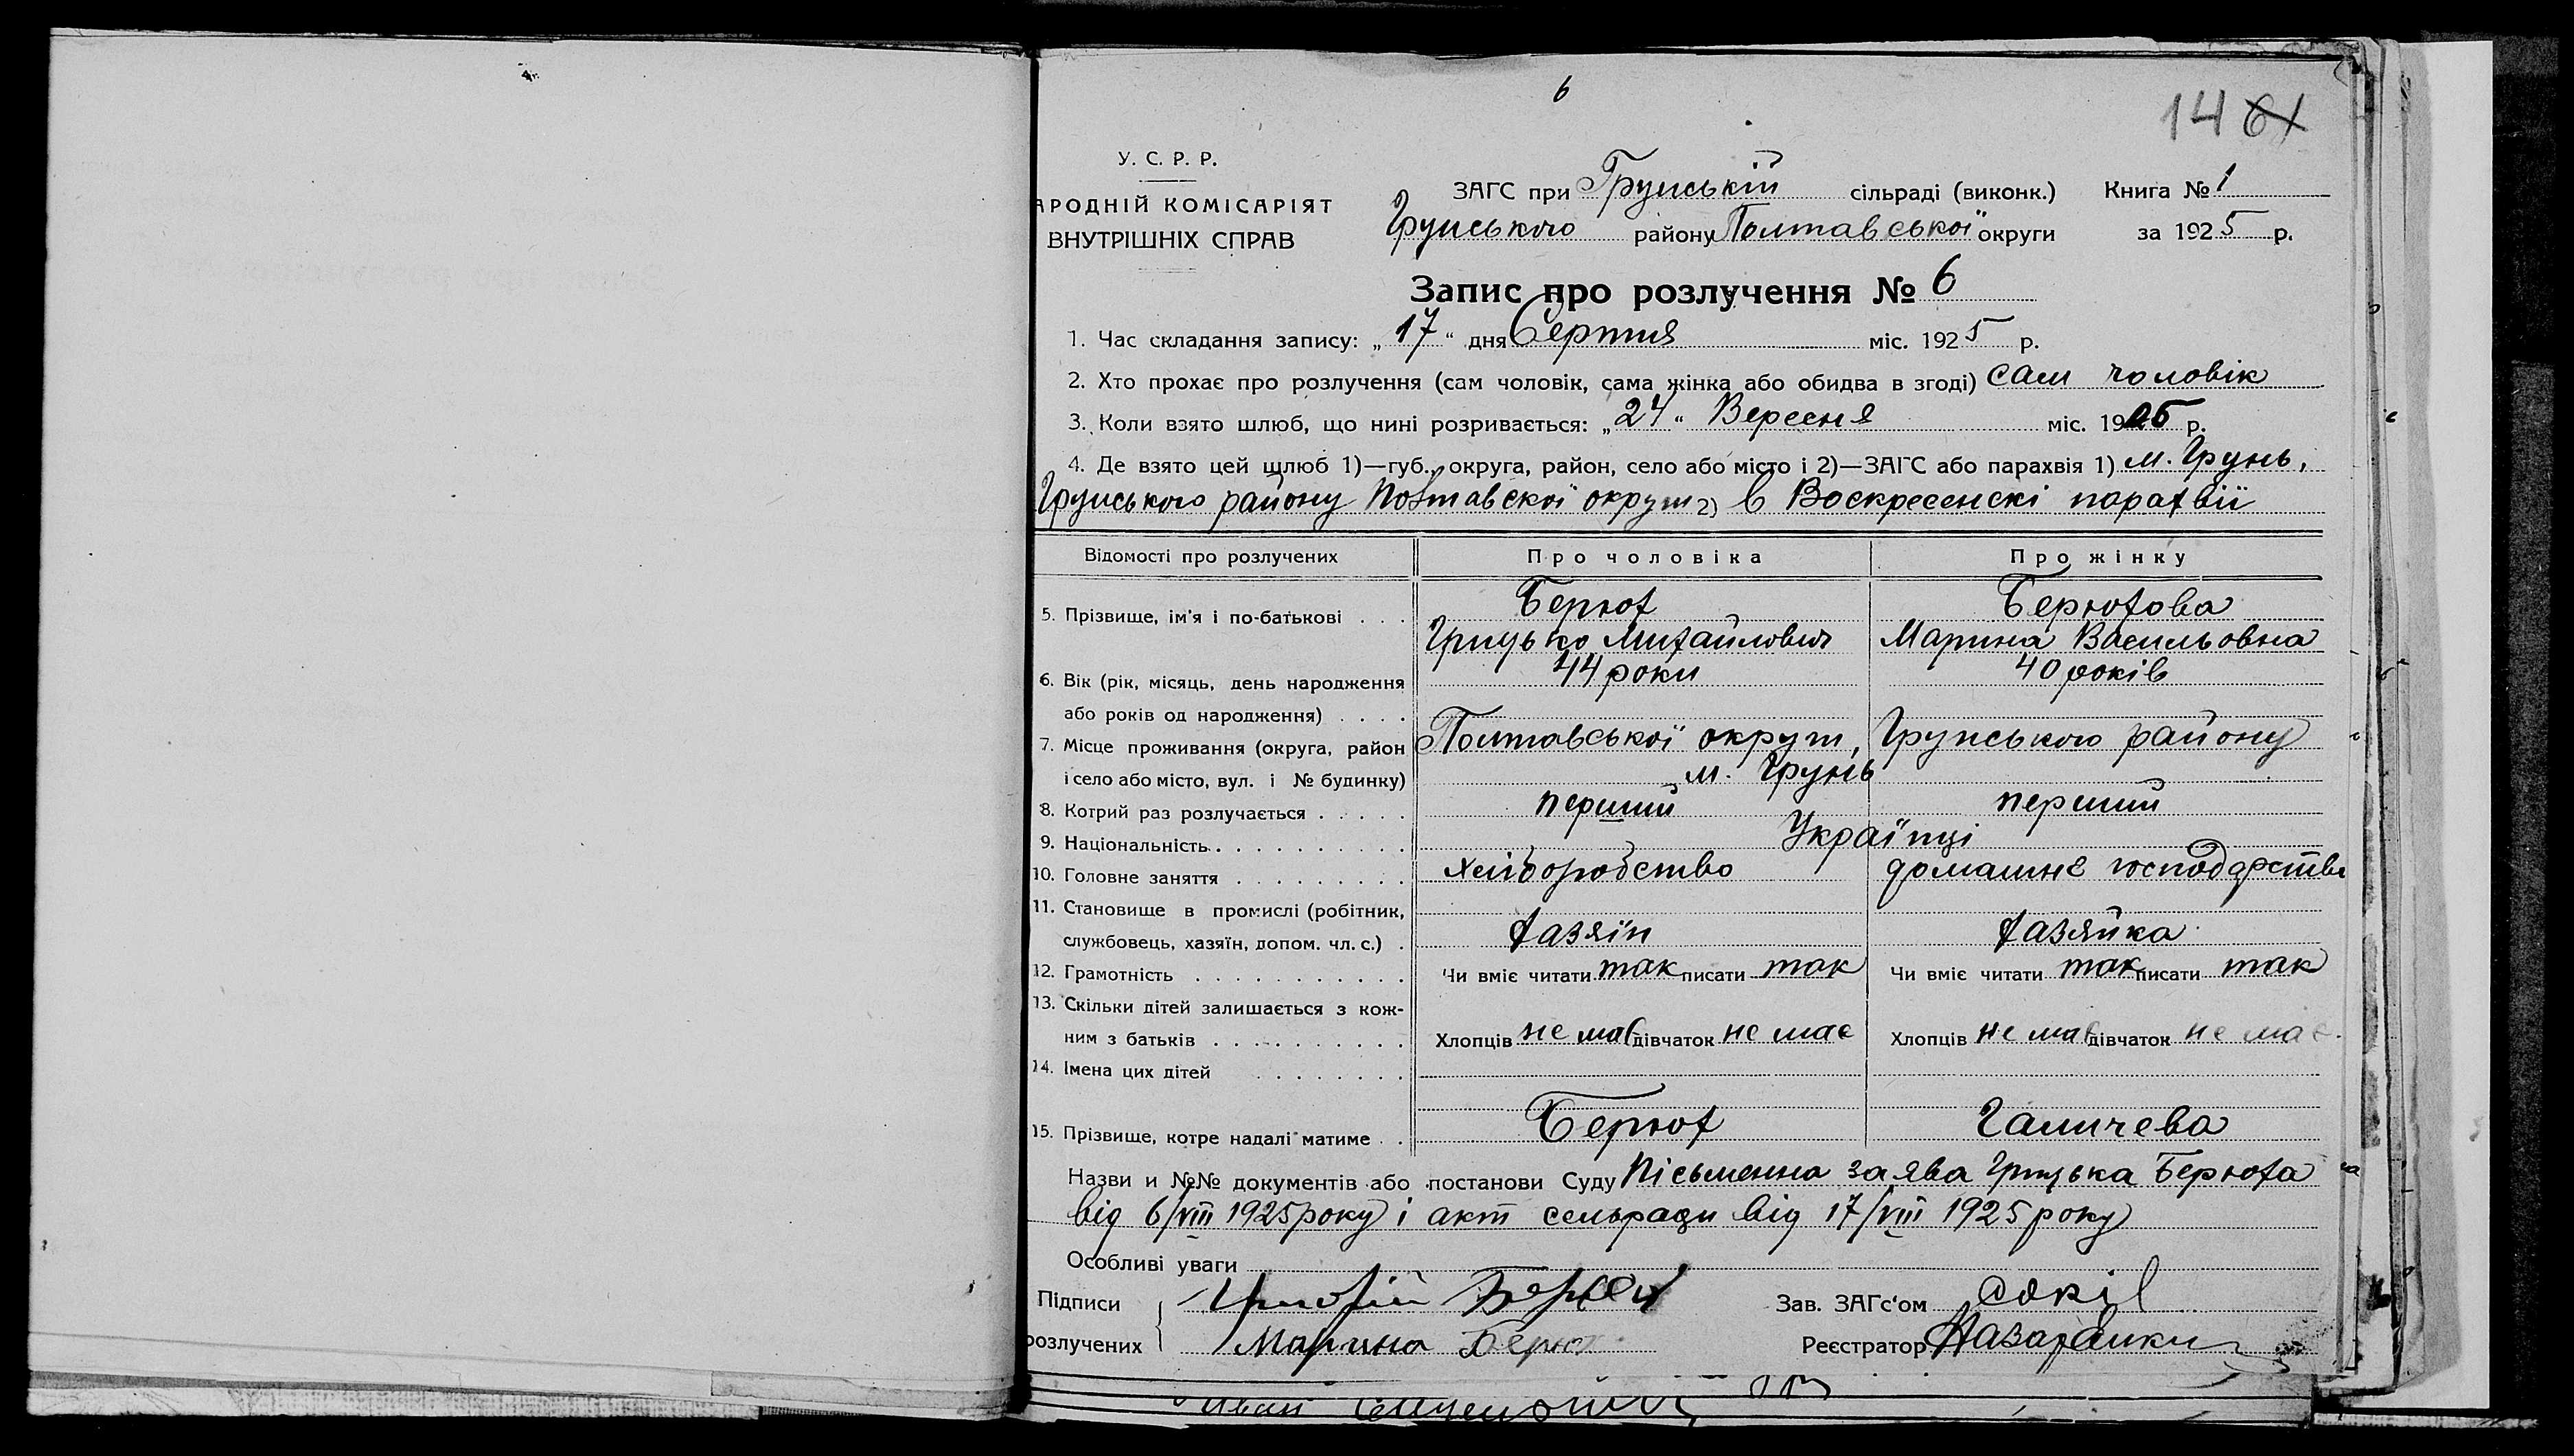 6
14 61
У. С. Р. Р.
АРОДНІЙ КОМІСАРІЯТ
ВНУТРІШНІХ СПРАВ
ЗАГС при Грунській сільраді (виконк.) Книга № 1
Грунського району Полтавської округи за 1925 р.
Запис про розлучення № 6
1. Час складання запису: „17“ дня Серпня міс. 1925 р.
2. Хто прохає про розлучення (сам чоловік, сама жінка або обидва в згоді) сам чоловік
3. Коли взято шлюб, що нині розривається: „24“ Вересня міс. 1905 р.
4. Де взято цей щлюб 1)—губ., округа, район, село або місто і 2)—ЗАГС або парахвія 1) м. Грунь,
Грунського району Полтавскої округи 2) в Воскресенскі парахвії
Відомості про розлучених Про чоловіка Про жінку
5. Прізвище, ім'я і по-батькові . . . Берюх Берюхова
Грицько Михайлович Марина Васильовна
6. Вік (рік, місяць, день народження 44 роки 40 років
або років од народження) . . . .
7. Місце проживання (округа, район Полтавської округи, Грунського району
і село або місто, вул. і № будинку) м. Грунь
8. Котрий раз розлучається . . . . . перший перший
9. Національність . . . . . . . . . . Українці
10. Головне заняття . . . . . . . . . хліборобство домашнє господарство
11. Становище в промислі (робітник,
службовець, хазяїн, допом. чл. с.) . хазяїн хазяйка
12. Грамотність . . . . . . . . . . . Чи вміє читати так писати так Чи вміє читати так писати так
13. Скільки дітей залишається з кож-
ним з батьків . . . . . . . . . . Хлопців не має дівчаток не має Хлопців не має дівчаток не має
14. Імена цих дітей . . . . . . . .
15. Прізвище, котре надалі матиме . . Берюх Галичева
Назви и №№ документів або постанови Суду Пісьменна заява Грицька Берюха
від 6/VIII 1925 року і акт сельради від 17/VIII 1925 року
Особливі уваги
Підписи Григорій Берюх Зав. ЗАГс'ом Сокіл
розлучених Марина Берюх Реєстратор